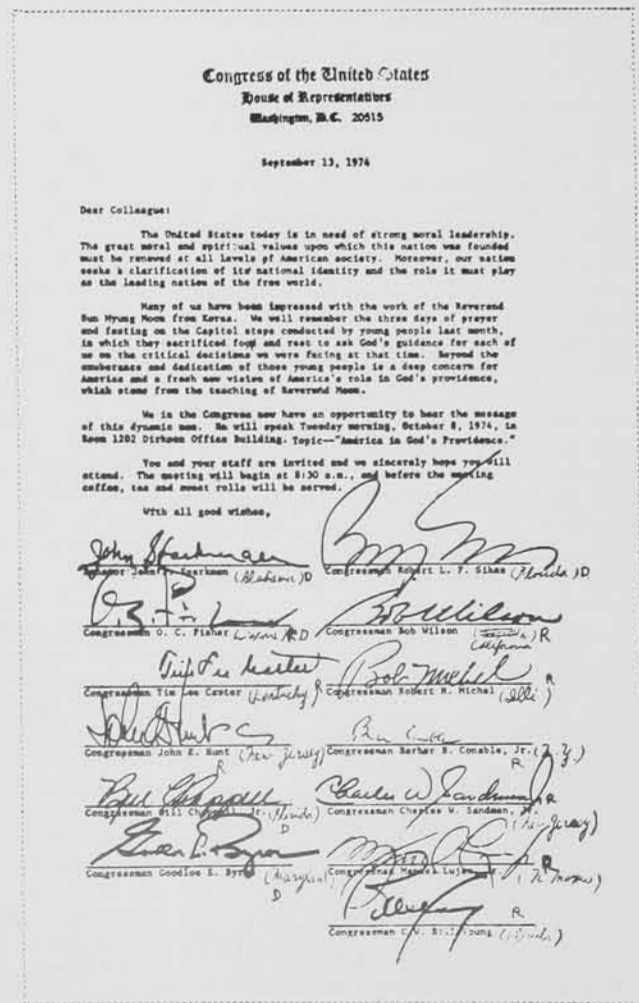 Congress of the United States
House of Representatives
Washington, D.C. 20515
September 13, 1974
Dear Colleague:
The United States today is in need of strong moral leadership.
The great moral and spiritual values upon which this nation was founded
must be renewed at all levels of American society. Moreover, our nation
seeks a clarification of its national identity and the role it must play
as the leading nation of the free world.
Many of us have been impressed with the work of the Reverend
Sun Myung Moon from Korea. We well remember the three days of prayer
and fasting on the Capitol steps conducted by young people last month,
in which they sacrificed food and rest to ask God's guidance for each of
us on the critical decisions we were facing at that time. Beyond the
exuberance and dedication of those young people is a deep concern for
America and a fresh new vision of America's role in God's providence,
which stems from the teaching of Reverend Moon.
We in the Congress now have an opportunity to hear the message
of this dynamic man. He will speak Tuesday morning, October 8, 1974, in
Room 1202 Dirksen Office Building. Topic--"America in God's Providence."
You and your staff are invited and we sincerely hope you will
attend. The meeting will begin at 8:30 a.m., and before the meeting
coffee, tea and sweet rolls will be served.
With all good wishes,
John Sparkman
Senator John Sparkman (Alabama) D Congressman Robert L. F. Sikes (Florida) D
Bob Wilson
Congressman O. C. Fisher D Congressman Bob Wilson R
California
Tim Lee Carter Bob Michel R
Congressman Tim Lee Carter (Kentucky) R Congressman Robert H. Michel (Illi)
John E Hunt
Congressman John E. Hunt (New Jersey) R Congressman Barber B. Conable, Jr. (N.Y.) R
Bill Chappell Charles W. Sandman R
Congressman Bill Chappell, Jr. (Florida) D Congressman Charles W. Sandman, Jr. (New Jersey)
Goodloe E. Byron R
Congressman Goodloe E. Byron (Maryland) D Congressman Manuel Lujan, Jr. (N. Mexico)
Bill Young R
Congressman C.W. Bill Young (Florida)